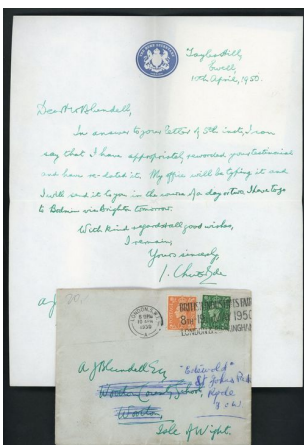 Ewell,
10th April, 1950.
Dear Mr Blundell,
In answer to your letter of 5th inst, I can
say that I have appropriately reworded your testimonial
and have re-dated it. My office will be typing it and
I will send it to you in the course of a day or two. I have to go
to Bodmin via Brighton tomorrow.
With kind regards & all good wishes,
I remain,
Yours sincerely,
J. Chuter Ede
LONDON. S.W.1
10 APR
1950
BRITISH INDUSTRIES FAIR
1950
LONDON
A J Blundell Esq
St Johns Road
Ryde
Isle of Wight.